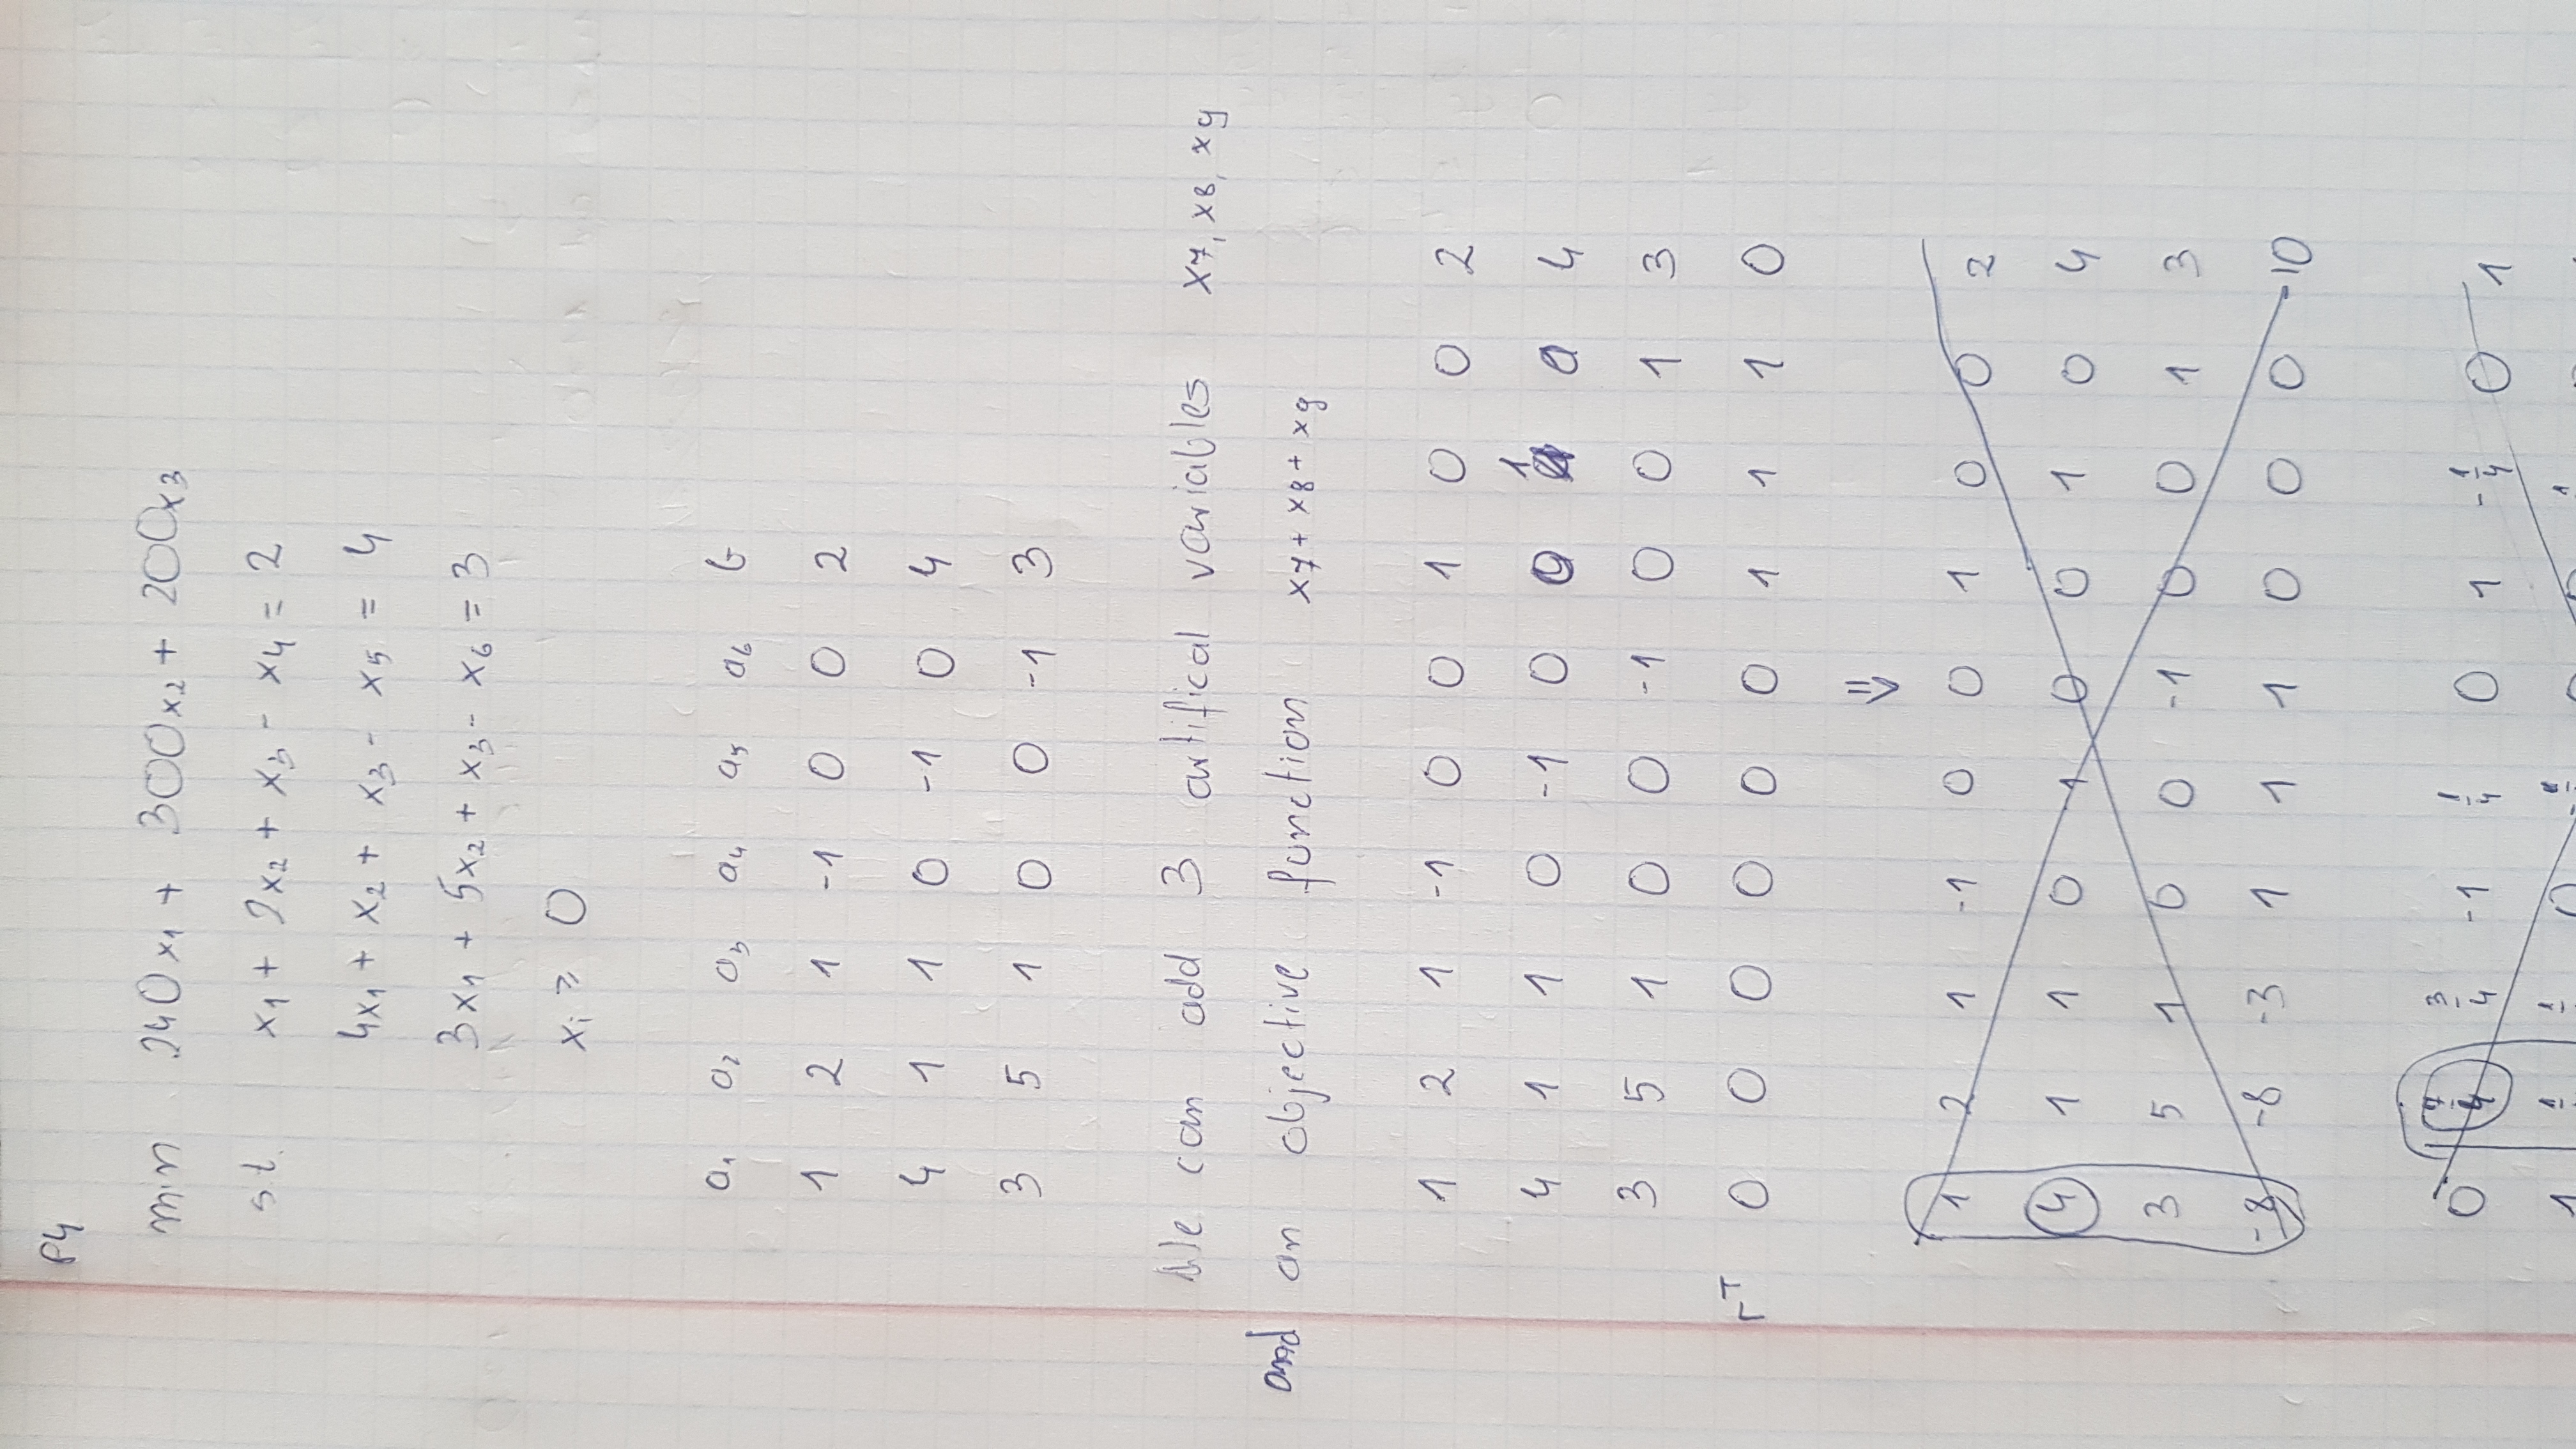 P4
min 240x₁ + 300x₂ + 200x₃
st. x₁ + 2x₂ + x₃ - x₄ = 2
4x₁ + x₂ + x₃ - x₅ = 4
3x₁ + 5x₂ + x₃ - x₆ = 3
xᵢ ≥ 0
a₁ a₂ a₃ a₄ a₅ a₆ b
1 2 1 -1 0 0 2
4 1 1 0 -1 0 4
3 5 1 0 0 -1 3
We can add 3 artifical variables x7, x8, x9
and an objective function x7 + x8 + x9
1 2 1 -1 0 0 1 0 0 2
4 1 1 0 -1 0 0 1 0 4
3 5 1 0 0 -1 0 0 1 3
rᵀ 0 0 0 0 0 0 1 1 1 0
⇓
1 2 1 -1 0 0 1 0 0 2
4 1 1 0 -1 0 0 1 0 4
3 5 1 0 0 -1 0 0 1 3
-8 -8 -3 1 1 1 0 0 0 -10
0 7/4 3/4 -1 1/4 0 1 -1/4 0 1